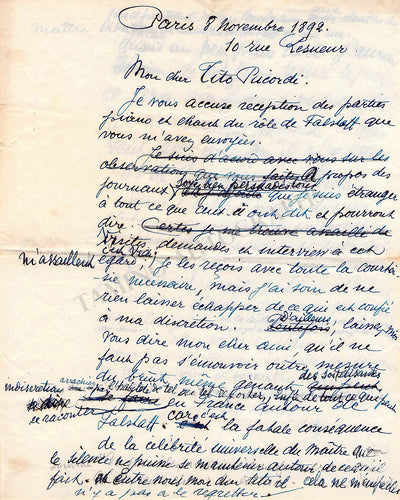 Paris 8 novembre 1892.
10 rue Lesueur.
Mon cher Tito Ricordi.
Je vous accuse réception des parties
piano et chant du rôle de Falstaff que
vous m'avez envoyées.
Je suis d'accord avec vous sur les
observations que vous faites à propos des
journaux soyez bien persuadés tous que je suis étranger
à tout ce que ceux-ci ont dit et pourront
dire. Certes je me trouve assailli de
visites, demandes et interviews à cet
m'assaillent égard. Je les reçois avec toute la courtoi-
sie nécessaire, mais j'ai soin de ne
rien laisser échapper de ce qui est confié
à ma discrétion. Toutefois, d'ailleurs, laissez-moi
vous dire mon cher ami, qu'il ne
faut pas s'émouvoir outre mesure
du bruit, même gênant, des soi-disantes
indiscrétions arrachées par de tel ou tel reporter, de tout ce qui peut
se dire se raconter en France autour de
Falstaff. car c'est la fatale conséquence
de la célébrité universelle du Maître que
le silence ne puisse se maintenir autour de ce qu'il
fait. Entre nous mon cher Tito
n'y a pas à le regretter.